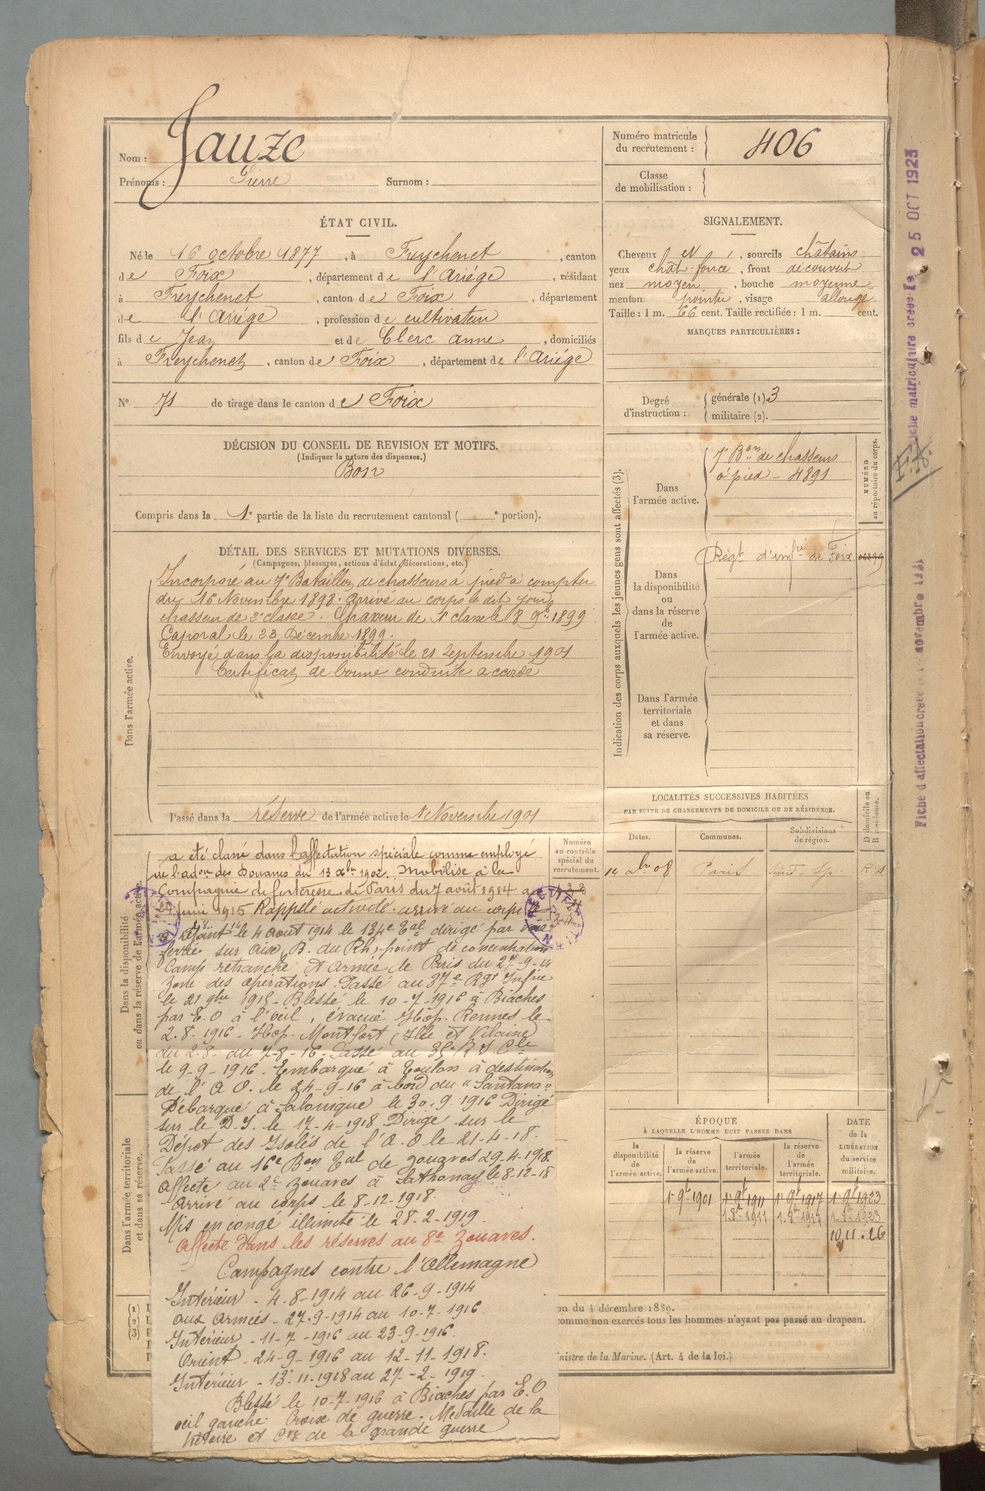 Nom : Jauze
Prénoms : Pierre Surnom :
Numéro matricule du recrutement : 406
Classe de mobilisation :
ÉTAT CIVIL.
Né le 16 octobre 1877, à Freychenet, canton
de Foix, département de l'Ariége, résidant
à Freychenet, canton de Foix, département
de l'Ariége, profession de cultivateur
fils de Jean et de Clerc Anne, domiciliés
à Freychenet, canton de Foix, département de l'Ariége
N° 71 de tirage dans le canton de Foix
SIGNALEMENT.
Cheveux , sourcils châtains
yeux chât. foncé, front découvert
nez moyen, bouche moyenne
menton pointu, visage allongé
Taille : 1 m. 66 cent. Taille rectifiée : 1 m. cent.
MARQUES PARTICULIÈRES :
Degré d'instruction : générale (1) 3
militaire (2).
DÉCISION DU CONSEIL DE REVISION ET MOTIFS.
(Indiquer la nature des dispenses.)
Bon
Compris dans la 1e partie de la liste du recrutement cantonal ( e portion).
DÉTAIL DES SERVICES ET MUTATIONS DIVERSES.
(Campagnes, blessures, actions d'éclat, décorations, etc.)
Dans l'armée active.
Incorporé au 7e Bataillon de chasseurs à pied à compter
du 16 Novembre 1898. Arrivé au corps le dit jour,
chasseur de 2e classe. de 1e classe le 18 9bre 1899
Caporal le 23 Décembre 1899.
Envoyé dans la disponibilité le 21 Septembre 1901
Certificat de bonne conduite accordé
Passé dans la réserve de l'armée active le 1 Novembre 1901
Indication des corps auxquels les jeunes gens sont affectés (3).
NUMÉRO au répertoire du corps.
Dans l'armée active.
7e Bon de chasseurs
à pied - 4891
Dans la disponibilité ou dans la réserve de l'armée active.
Régt d'infrie de Foix
Dans l'armée territoriale et dans sa réserve.
LOCALITÉS SUCCESSIVES HABITÉES
PAR SUITE DE CHANGEMENTS DE DOMICILE OU DE RÉSIDENCE.
Dates. Communes. Subdivisions de région. D domicile ou R résidence.
08 Paris
Dans la disponibilité ou dans la réserve de l'armée active.
Numéro au contrôle spécial du recrutement.
a été classé dans l'affectation spéciale comme employé
de l'adon des Douanes du 13 Xbre 1902. Mobilisé à la
Compagnie de forteresse de Paris du 7 août 1914 au
juin 1915 Rappelé activité. arrivé au corps
le 4 Août 1914 le 134e Eal dirigé par voie
ferrée sur Aix, B. du Rh. point de concentration
Camp retranché et Armée de Paris du 27-9-14
zone des opérations. Passé au 37e Rgt Infrie
le 21 9bre 1915 - Blessé le 10-7-1916 à Biaches
par E.O à l'œil, évacué Hop. Rennes le
2.8.1916. Hop. Montfort (Ille et Vilaine)
du 2-8 au 7-8-16. Passé au 35e R I Cle
le 9-9-1916. Embarqué à Toulon à destination
de l'A O. le 24-9-16 à bord du "Santana"
Débarqué à Salonique le 30.9.1916 Dirigé
sur le D.I. le 17-4-1918 Dirigé sur le
Dépot des Isolés de l'A.O le 21-4-18.
Passé au 16e Bon Eal de zouaves 29-4-1918.
Affecté au 2e zouaves à Sathonay le 8-12-18
Arrivé au corps le 8-12-1918.
Mis en congé illimité le 28-2-1919.
Affecté dans les réserves au 8e Zouaves.
Campagnes contre l'Allemagne
Intérieur - 4-8-1914 au 26-9-1914
aux armées - 27-9-1914 au 10-7-1916.
Intérieur - 11-7-1916 au 23-9-1916.
Orient - 24-9-1916 au 12-11-1918.
Intérieur - 13-11-1918 au 27-2-1919.
Blessé le 10-7-1916 à Biaches par E.O
œil gauche Croix de guerre. Médaille de la
Victoire et de la grande guerre
Dans l'armée territoriale et dans sa réserve.
ÉPOQUE
À LAQUELLE L'HOMME DOIT PASSER DANS
la disponibilité de l'armée active. la réserve de l'armée active. l'armée territoriale. la réserve de l'armée territoriale.
DATE de la LIBÉRATION du service militaire.
1 9bre 1901 1 9bre 1911 1 9bre 1917 1 9bre 1923
10.11.26
(1)
(2)
(3)
on du 4 décembre 1889.
comme non exercés tous les hommes n'ayant pas passé au drapeau.
inistre de la Marine. (Art. 4 de la loi.)
iche matriculaire créée le 25 OCT 1923
Fiche d'affectation créée le novembre 1921